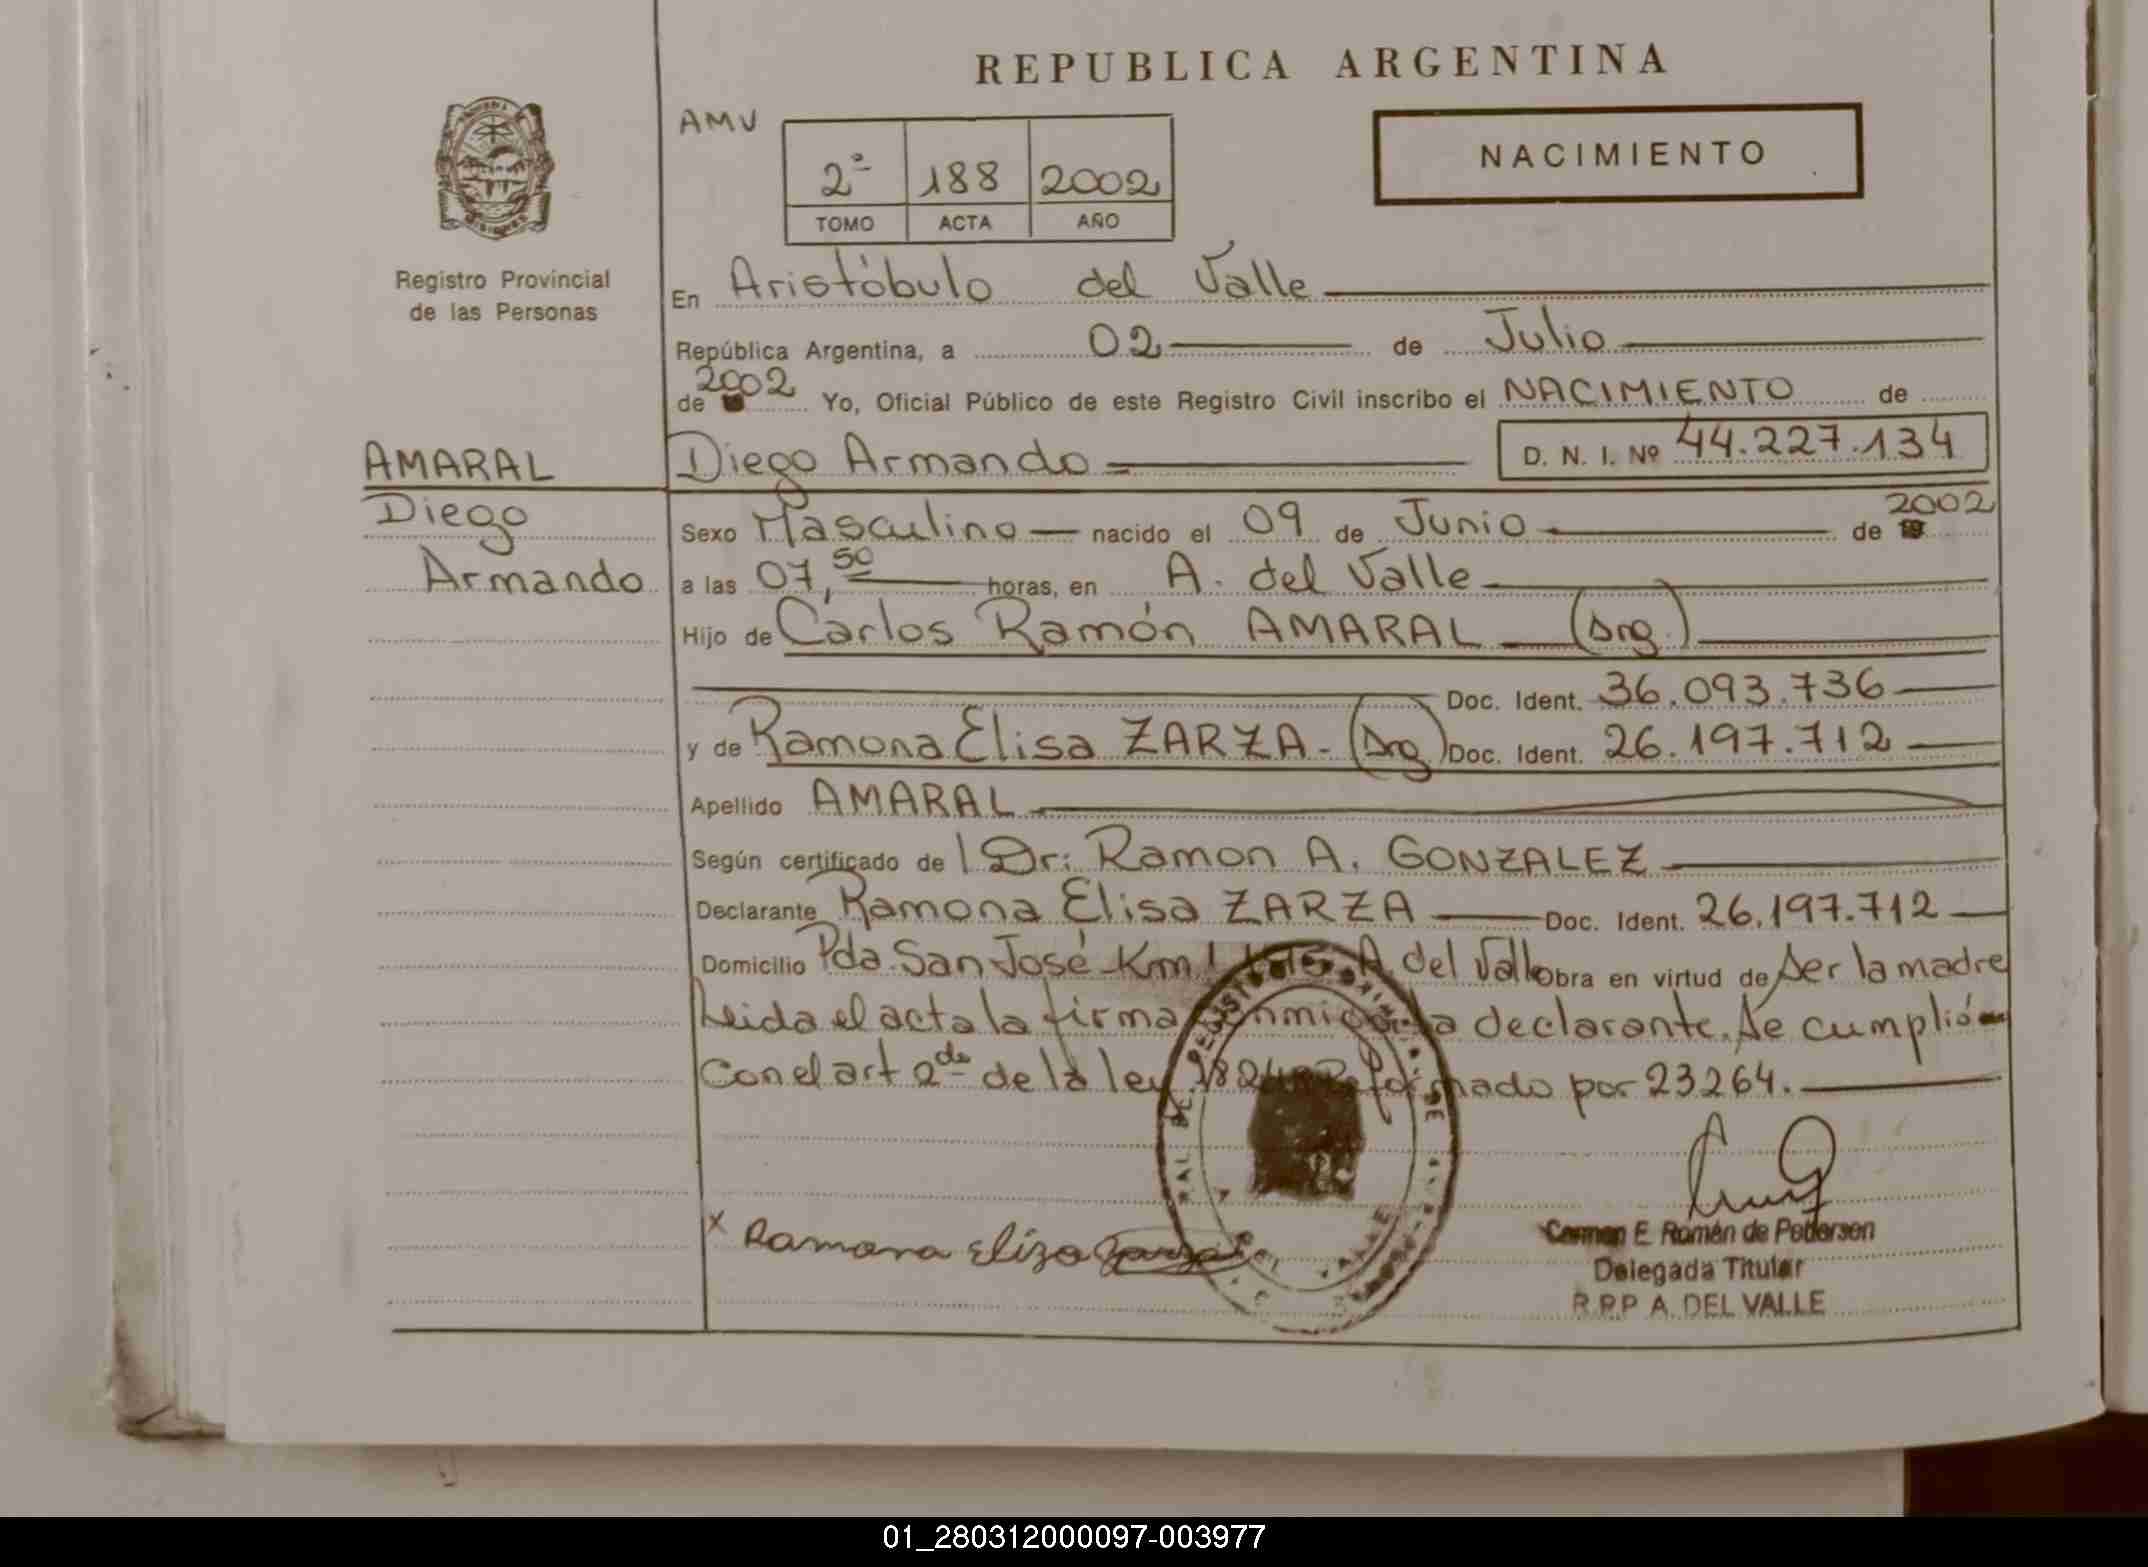 REPUBLICA ARGENTINA
AMV
NACIMIENTO
2ª 188 2002
TOMO ACTA AÑO
Registro Provincial
de las Personas
En Aristóbulo del Valle
República Argentina, a 02 de Julio
de 2002 Yo, Oficial Público de este Registro Civil inscribo el NACIMIENTO de
AMARAL
Diego Armando D. N. I. Nº 44.227.134
Diego
Armando
Sexo Masculino nacido el 09 de Junio de 2002
a las 07,50 horas, en A. del Valle
Hijo de Carlos Ramón AMARAL (Arg.)
Doc. Ident. 36.093.736
y de Ramona Elisa ZARZA - (Arg) Doc. Ident. 26.197.712
Apellido AMARAL
Según certificado de Dr: Ramon A. GONZALEZ
Declarante Ramona Elisa ZARZA Doc. Ident. 26.197.712
Domicilio Pda. San José Km A. del Valle Obra en virtud de Ser la madre
Leida el acta la firma declarante. Se cumplió
Con el art 2do de la ley por 23264.
x Ramona Eliza Zarza
Carmen E. Román de Pedersen
Delegada Titular
R.P.P A. DEL VALLE
01_280312000097-003977